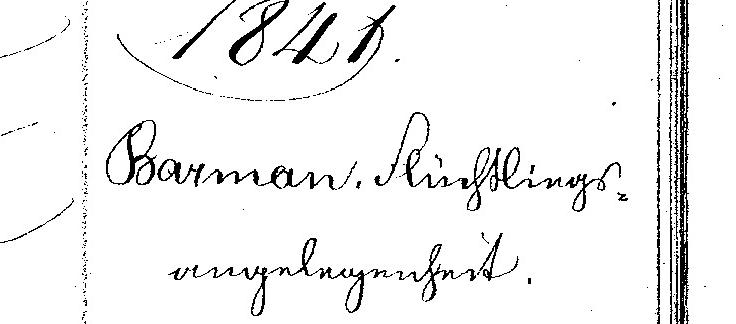 1841.
Barman. Flüchtlings-
angelegenheit.